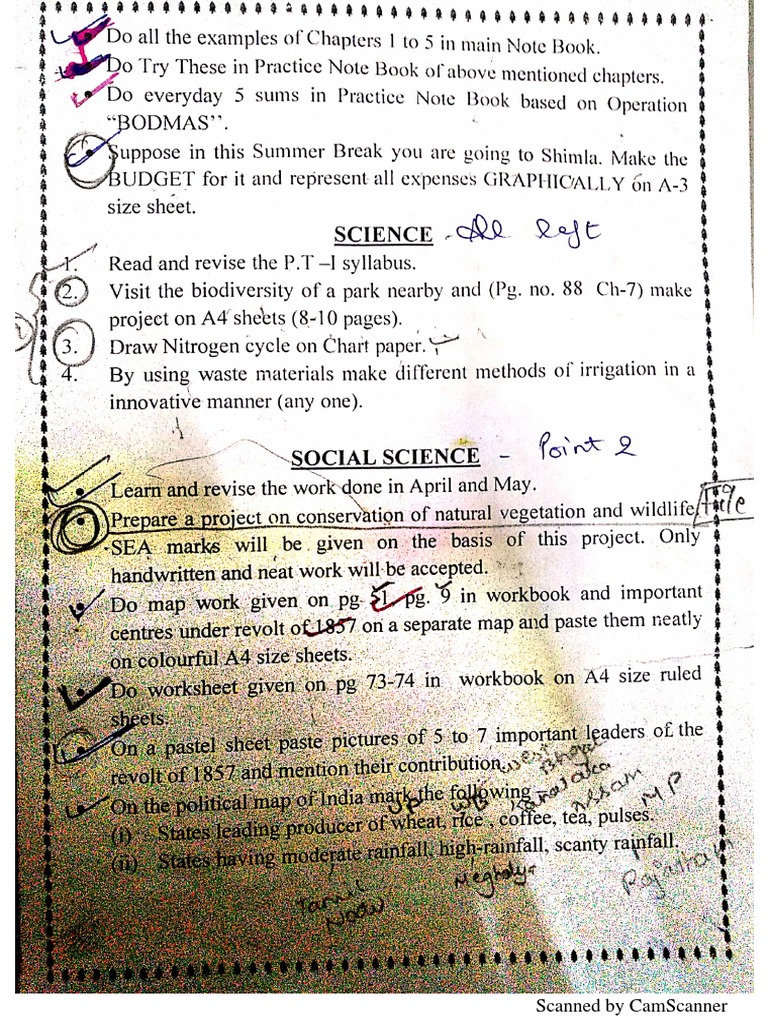 Do all the examples of Chapters 1 to 5 in main Note Book.
Do Try These in Practice Note Book of above mentioned chapters.
Do everyday 5 sums in Practice Note Book based on Operation
“BODMAS’’.
Suppose in this Summer Break you are going to Shimla. Make the
BUDGET for it and represent all expenses GRAPHICALLY on A-3
size sheet.
SCIENCE - All left
1. Read and revise the P.T –I syllabus.
2. Visit the biodiversity of a park nearby and (Pg. no. 88 Ch-7) make
project on A4 sheets (8-10 pages).
3. Draw Nitrogen cycle on Chart paper.
4. By using waste materials make different methods of irrigation in a
innovative manner (any one).
SOCIAL SCIENCE - Point 2
Learn and revise the work done in April and May.
Prepare a project on conservation of natural vegetation and wildlife. Title
SEA marks will be given on the basis of this project. Only
handwritten and neat work will be accepted.
Do map work given on pg 51, pg. 9 in workbook and important
centres under revolt of 1857 on a separate map and paste them neatly
on colourful A4 size sheets.
Do worksheet given on pg 73-74 in workbook on A4 size ruled
sheets.
On a pastel sheet paste pictures of 5 to 7 important leaders of the
revolt of 1857 and mention their contribution.
West
Bhopal
On the political map of India mark the following
UP WB Karnataka Assam MP
(i) States leading producer of wheat, rice , coffee, tea, pulses.
(ii) States having moderate rainfall, high-rainfall, scanty rainfall.
Tamil
Nadu
Meghalya
Rajasthan
Scanned by CamScanner